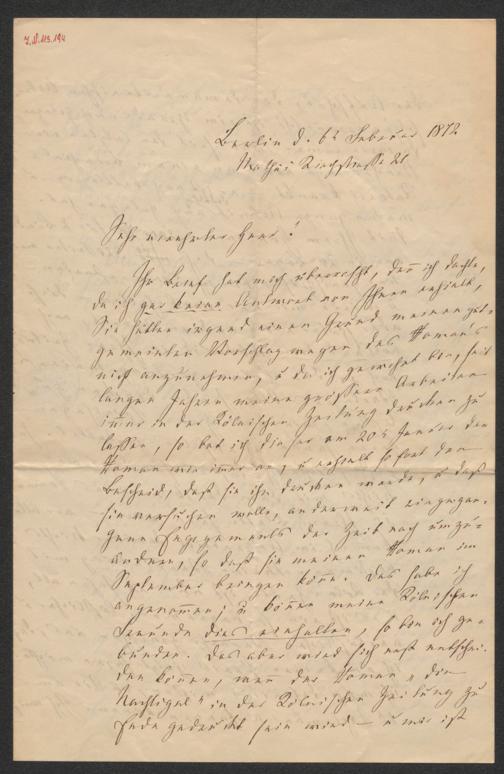 I.N. 115.194
Berlin d. 6t Februar 1872
Mathäi Kirchstrasse 21
Sehr verehrter Herr!
Ihr Brief hat mich überrascht, deñ ich dachte,
da ich gar keine Antwort von Ihnen erhielt,
Sie hätten irgend einen Grund meinen gut-
gemeinten Vorschlag wegen des Romans
nicht anzunehmen, u da ich gewohnt bin, seit
langen Jahren meine grösseren Arbeiten
im̃er in der Kölnischen Zeitung drucken zu
lassen, so bot ich dieser am 20t Januar den
Roman wie im̃er an, u erhielt sofort den
Bescheid, daß sie ihn drucken werde, u daß
sie versuchen wolle, anderweit eingegan-
gene Engagements der Zeit nach umzu-
ändern, so daß sie meinen Roman im
September bringen köñe. Das habe ich
angenom̃en; u köñen meine Kölnischen
Freunde dies einhalten, so bin ich ge-
bunden. Das aber wird sich erst entschei-
den köñen, wañ der Roman „die
Nachtigal" in der Kölnischen Zeitung zu
Ende gedruckt sein wird — u mir ist